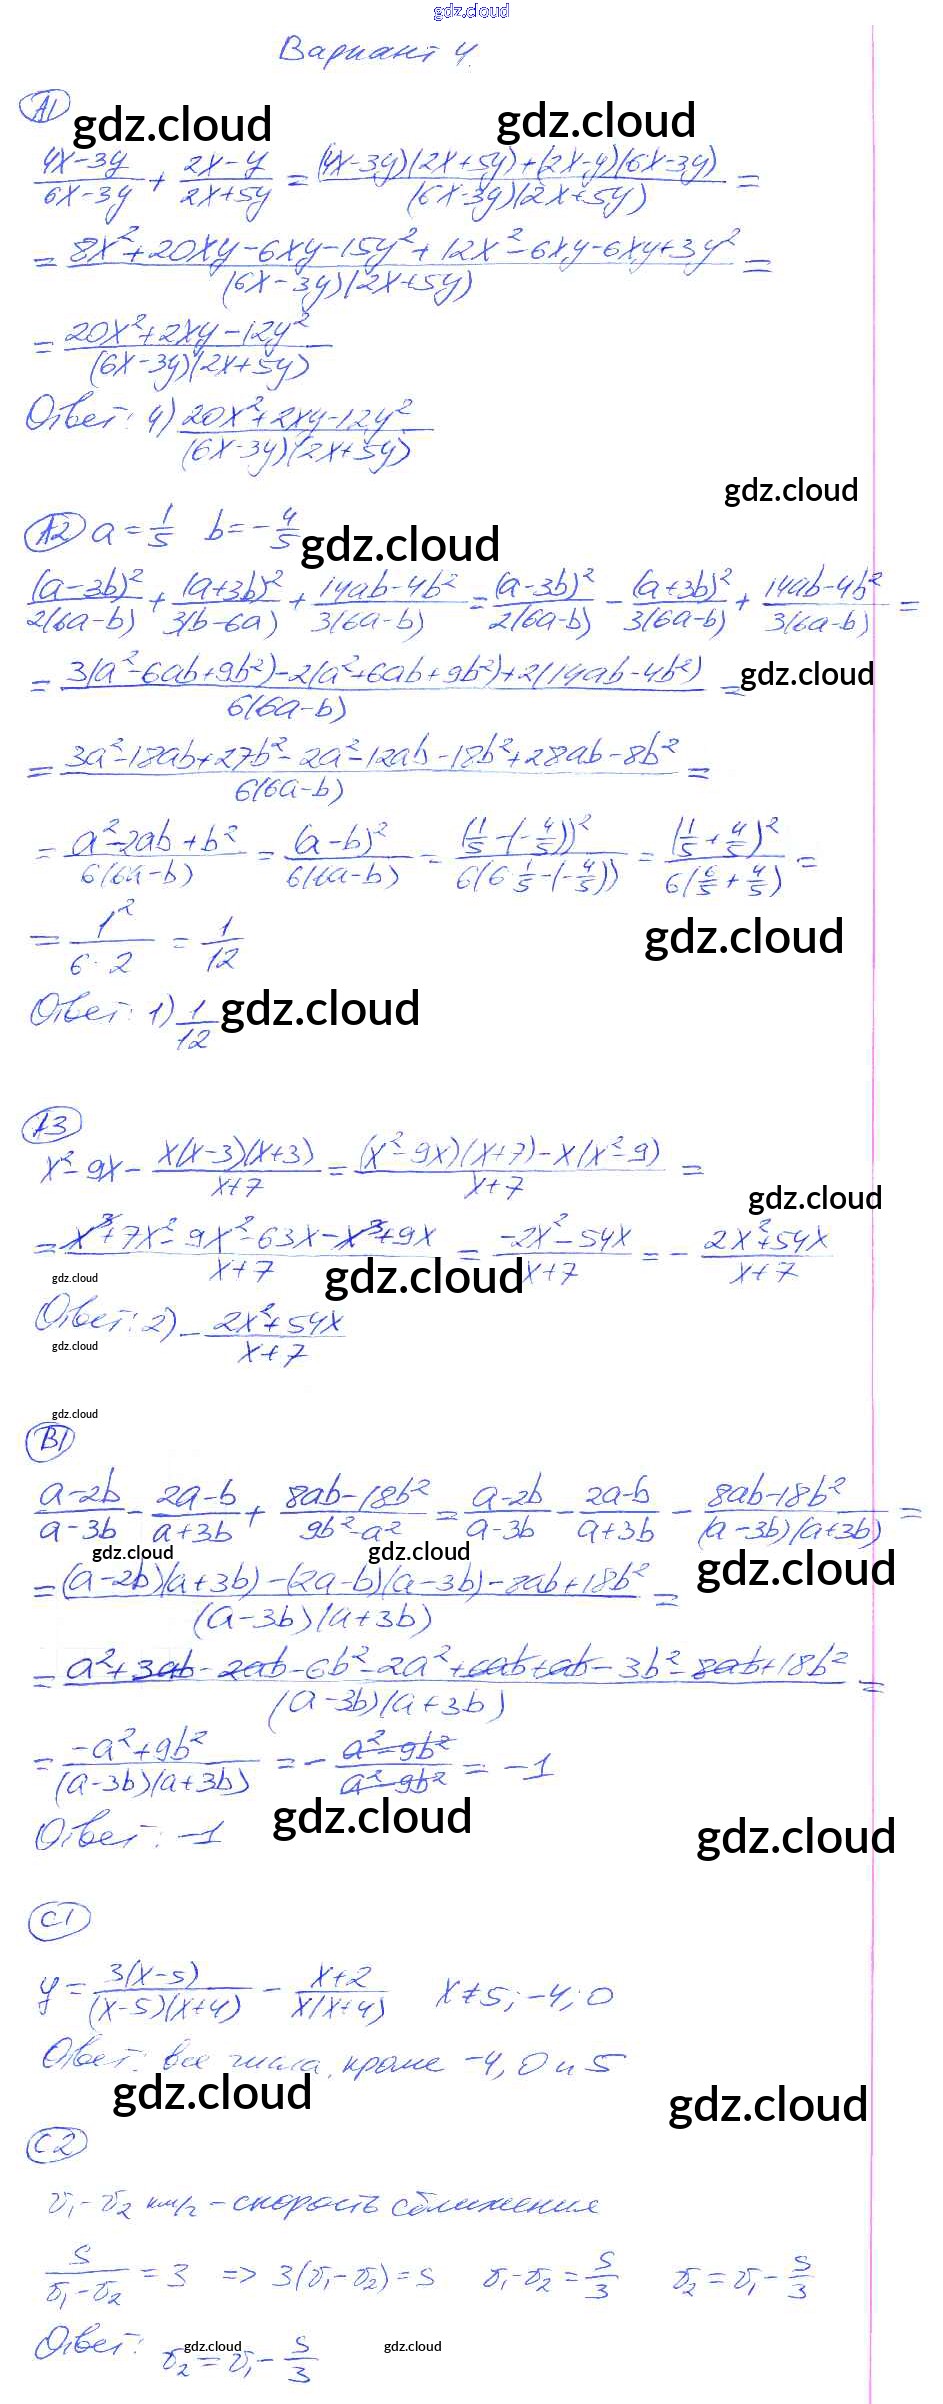 gdz.cloud
Вариант 4.
А1 gdz.cloud gdz.cloud
(4x-3y)/(6x-3y) + (2x-y)/(2x+5y) = ((4x-3y)(2x+5y)+(2x-y)(6x-3y))/((6x-3y)(2x+5y)) =
= (8x²+20xy-6xy-15y²+12x²-6xy-6xy+3y²)/((6x-3y)(2x+5y)) =
= (20x²+2xy-12y²)/((6x-3y)(2x+5y))
Ответ: 4) (20x²+2xy-12y²)/((6x-3y)(2x+5y))
gdz.cloud
А2 a = 1/5 b = -4/5 gdz.cloud
(a-3b)²/(2(6a-b)) + (a+3b)²/(3(b-6a)) + (14ab-4b²)/(3(6a-b)) = (a-3b)²/(2(6a-b)) - (a+3b)²/(3(6a-b)) + (14ab-4b²)/(3(6a-b)) =
= (3(a²-6ab+9b²)-2(a²+6ab+9b²)+2(14ab-4b²))/(6(6a-b)) = gdz.cloud
= (3a²-18ab+27b²-2a²-12ab-18b²+28ab-8b²)/(6(6a-b)) =
= (a²-2ab+b²)/(6(6a-b)) = (a-b)²/(6(6a-b)) = (1/5-(-4/5))²/(6(6·1/5-(-4/5))) = (1/5+4/5)²/(6(6/5+4/5)) =
= 1²/(6·2) = 1/12 gdz.cloud
Ответ: 1) 1/12 gdz.cloud
А3
x²-9x - x(x-3)(x+3)/(x+7) = ((x²-9x)(x+7)-x(x²-9))/(x+7) =
gdz.cloud
= (x³+7x²-9x²-63x-x³+9x)/(x+7) = (-2x²-54x)/(x+7) = - (2x²+54x)/(x+7)
gdz.cloud gdz.cloud
Ответ: 2) - (2x²+54x)/(x+7)
gdz.cloud
gdz.cloud
В1
(a-2b)/(a-3b) - (2a-b)/(a+3b) + (8ab-18b²)/(9b²-a²) = (a-2b)/(a-3b) - (2a-b)/(a+3b) - (8ab-18b²)/((a-3b)(a+3b)) =
gdz.cloud gdz.cloud gdz.cloud
= ((a-2b)(a+3b)-(2a-b)(a-3b)-8ab+18b²)/((a-3b)(a+3b)) =
= (a²+3ab-2ab-6b²-2a²+6ab+ab-3b²-8ab+18b²)/((a-3b)(a+3b)) =
= (-a²+9b²)/((a-3b)(a+3b)) = - (a²-9b²)/(a²-9b²) = -1
Ответ: -1 gdz.cloud gdz.cloud
С1
y = 3(x-5)/((x-5)(x+4)) - (x+2)/(x(x+4)) x≠5; -4; 0
Ответ: все числа, кроме -4, 0 и 5
gdz.cloud gdz.cloud
С2
v₁-v₂ км/ч - скорость сближения
S/(v₁-v₂) = 3 => 3(v₁-v₂) = S v₁-v₂ = S/3 v₂ = v₁ - S/3
Ответ: v₂ = v₁ - S/3 gdz.cloud gdz.cloud